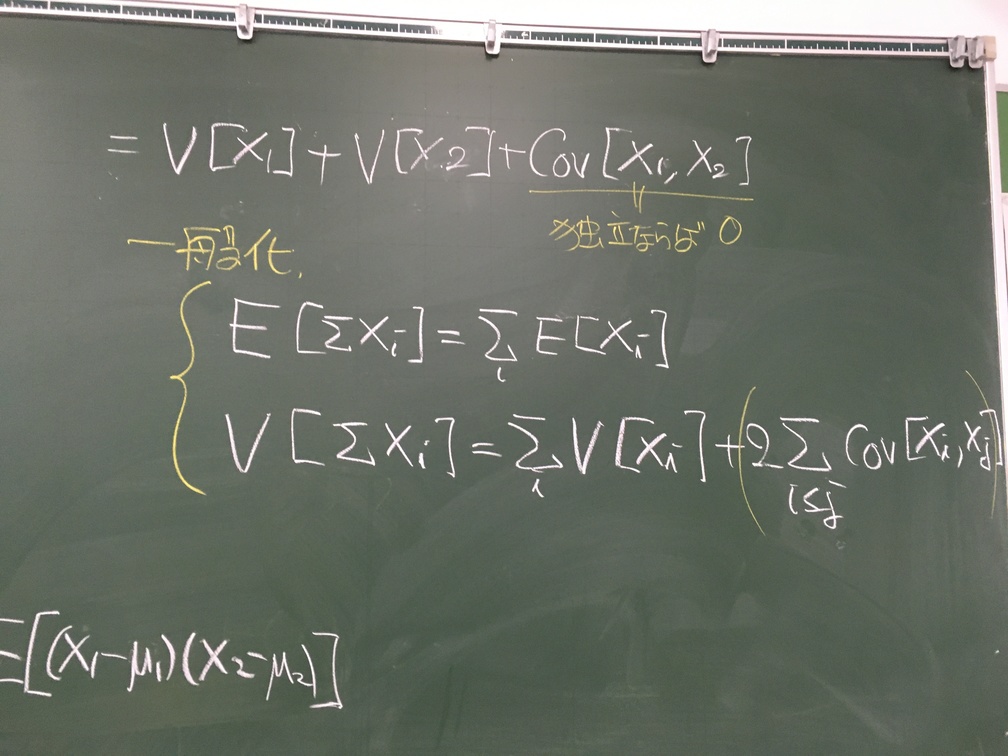 = V[X₁] + V[X₂] + Cov[X₁, X₂]
独立ならば 0
一般化,
E[ΣXᵢ] = Σᵢ E[Xᵢ]
V[ΣXᵢ] = Σᵢ V[Xᵢ] + (2 Σ_{i≤j} Cov[Xᵢ, Xⱼ])
E[(X₁-μ₁)(X₂-μ₂)]